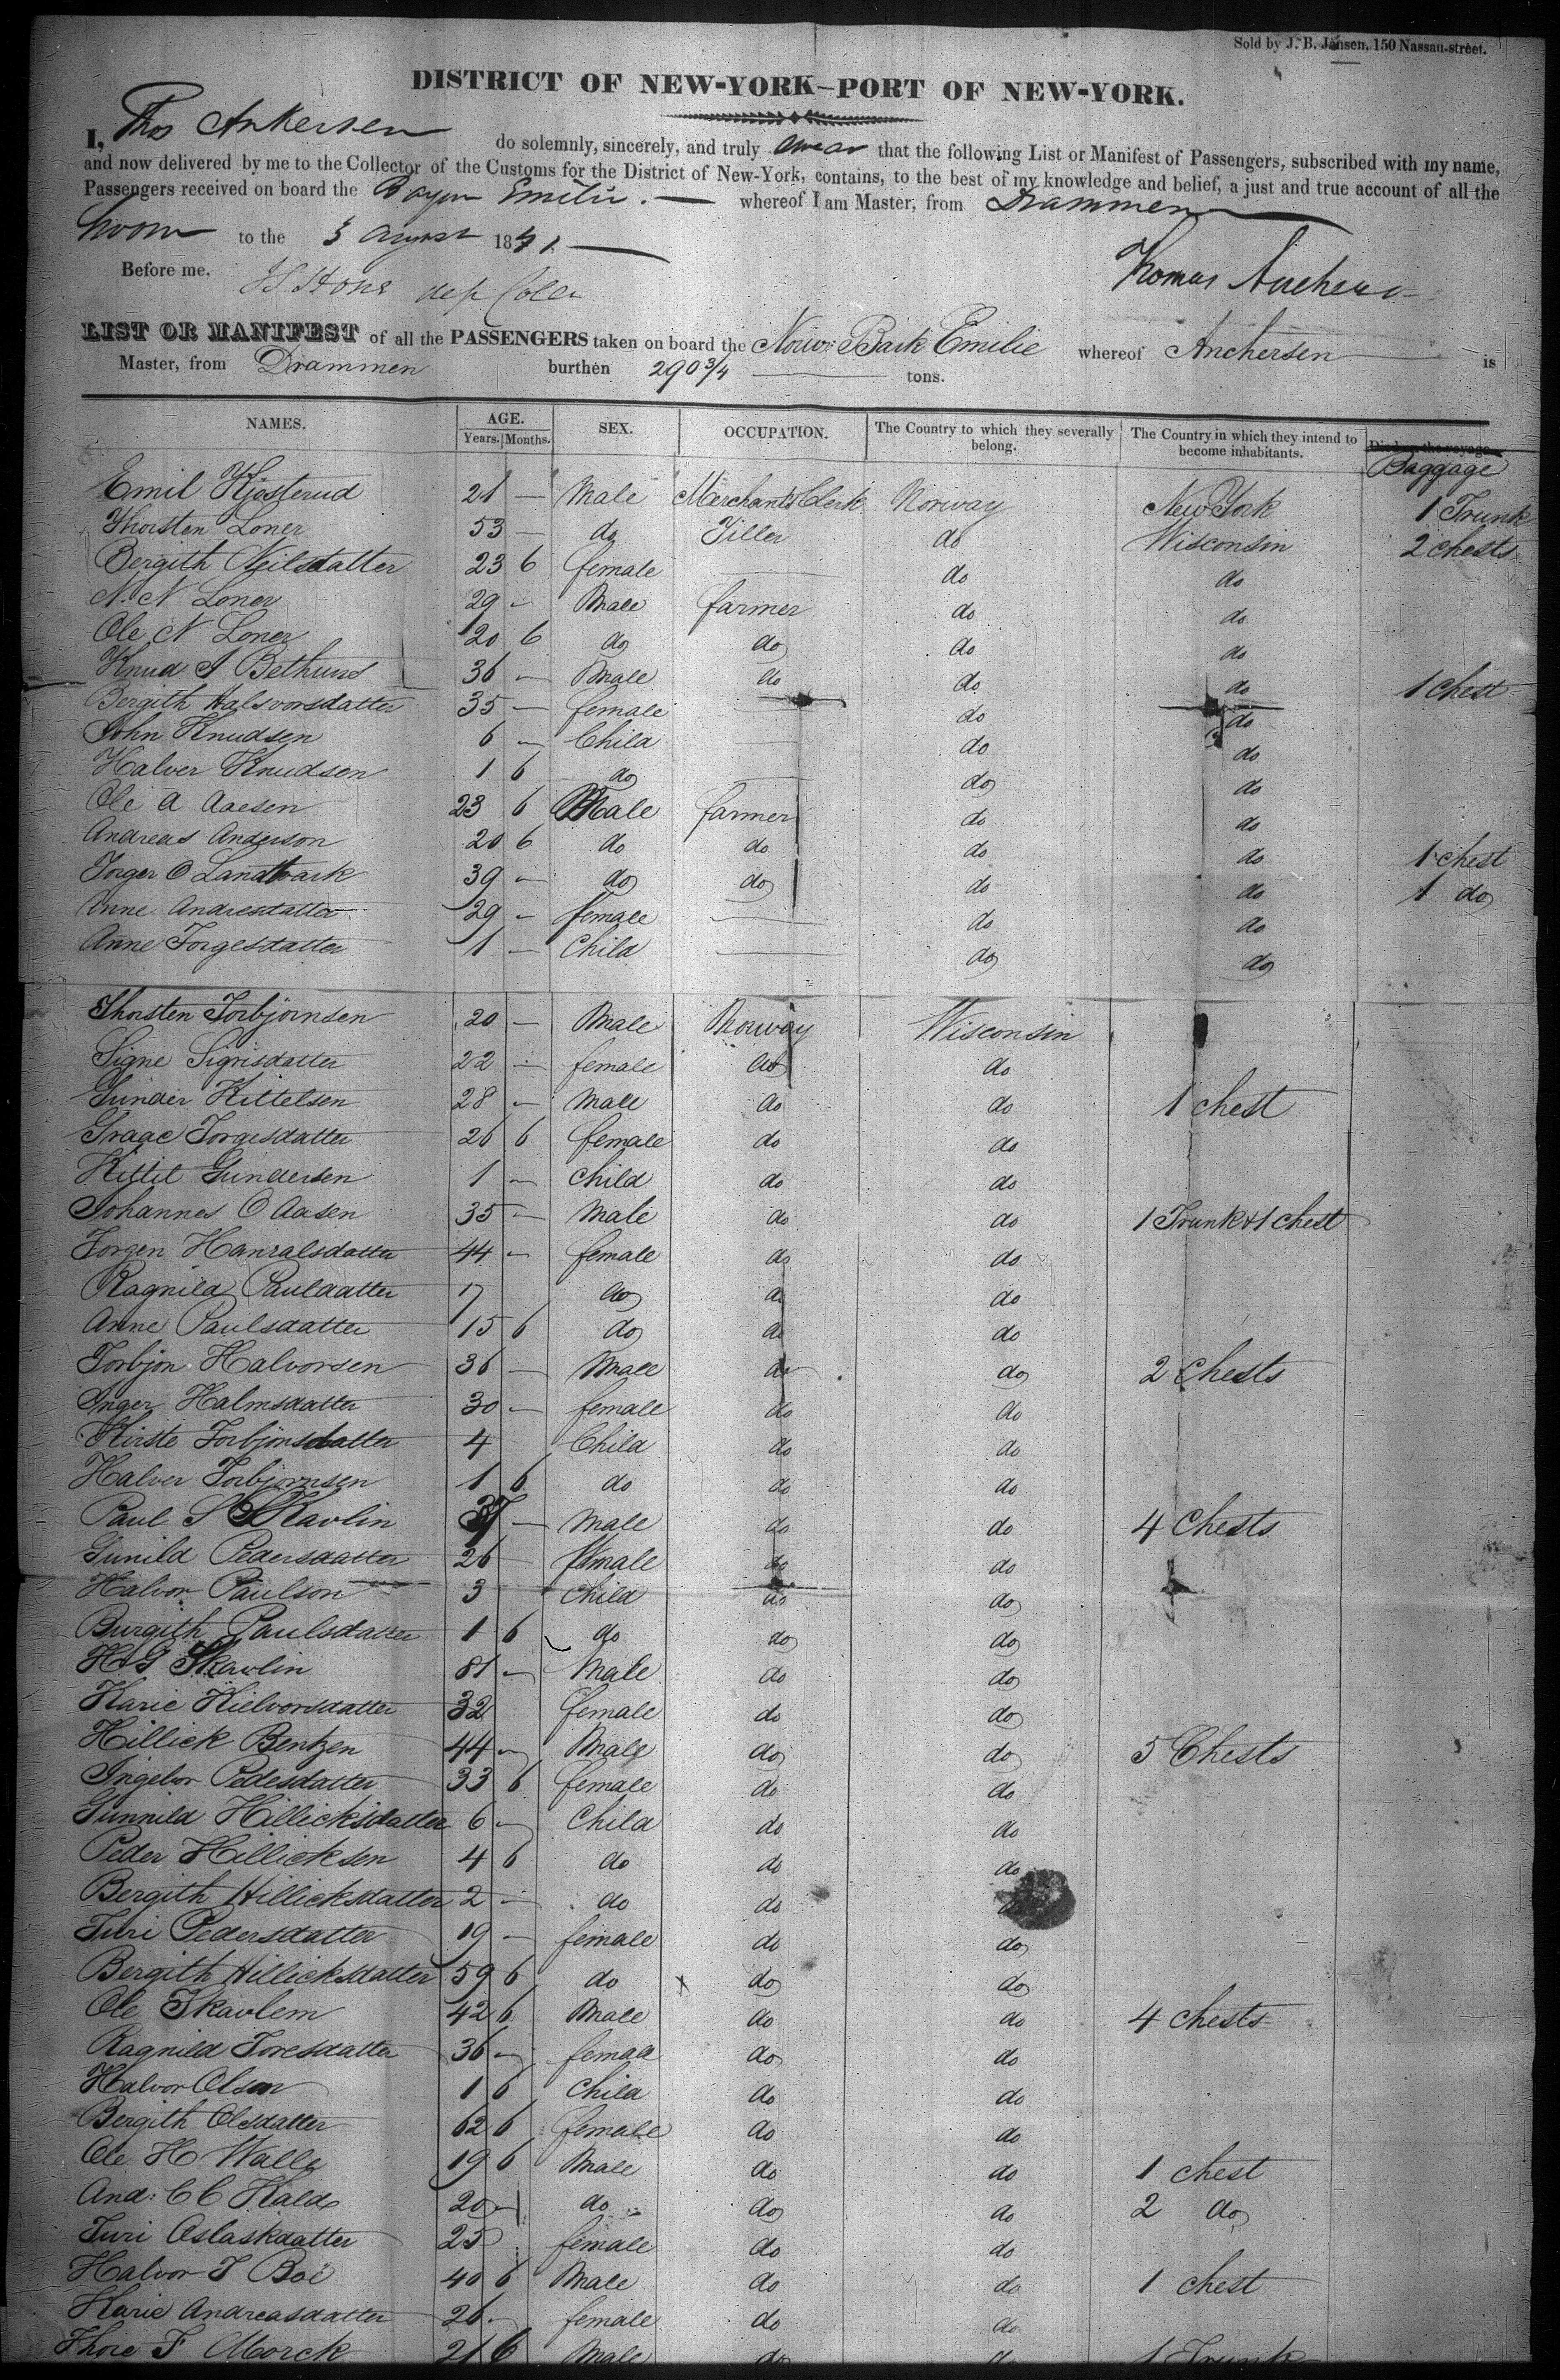 Sold by J. B. Jansen, 150 Nassau-street.
DISTRICT OF NEW-YORK–PORT OF NEW-YORK.
I, Thos Ankersen do solemnly, sincerely, and truly swear that the following List or Manifest of Passengers, subscribed with my name,
and now delivered by me to the Collector of the Customs for the District of New-York, contains, to the best of my knowledge and belief, a just and true account of all the
Passengers received on board the Emilie. whereof I am Master, from Drammen
to the 3 August 1841
Before me, dep Coll
Thomas Anchersen
LIST OR MANIFEST of all the PASSENGERS taken on board the Norw: Bark Emilie whereof Anchersen is
Master, from Drammen burthen 290 3/4 tons.
NAMES. AGE. Years. Months. SEX. OCCUPATION. The Country to which they severally belong. The Country in which they intend to become inhabitants. Died on the voyage
Baggage
Emil Kjosterud 21 — Male Merchants Clerk Norway New York 1 Trunk
Thorsten Loner 53 — do Tiller do Wisconsin 2 chests
Bergith Neilsdatter 23 6 female do do
N. N Loner 29 — Male farmer do do
Ole N Loner 20 6 do do do do
Knud A Bethuns 36 — Male do do do 1 chest
Bergith Halsvorsdatter 35 — female do do
John Knudsen 6 — Child do do
Halver Knudsen 1 6 do do do
Ole A Aaesen 23 6 Male farmer do do
Andreas Anderson 20 6 do do do do 1 chest
Torger O Landtvark 39 — do do do do 1 do
Anne Andresdatter 29 — female do do
Anne Torgesdatter 1 — Child do do
Thorsten Torbjornsen 20 — Male Norway Wisconsin
Signe Sigrisdatter 22 — female do do
Gunder Kittelsen 28 — Male do do 1 chest
Graae Torgesdatter 26 6 female do do
Kittil Gundersen 1 — Child do do
Johannes O Aasen 35 — Male do do 1 Trunk & 1 chest
Jorgen Hanralsdatter 44 — female do do
Ragnild Pauldatter 17 do do do
Anne Paulsdatter 15 6 do do do
Torbjon Halvorsen 36 — Male do do 2 Chests
Inger Halmsdatter 30 — female do do
Kirste Torbjonsdatter 4 Child do do
Halver Torbjornsen 1 6 do do do
Paul S Skavlin 37 — Male do do 4 Chests
Gunild Pedersdatter 26 female do do
Halvor Paulson 3 Child do do
Burgith Paulsdatter 1 6 do do do
H G Skavlin 81 — Male do do
Karie Kielvorsdatter 32 female do do
Hillick Bentzen 44 — Male do do 5 Chests
Ingebor Pedesdatter 33 6 female do do
Gunnild Hillicksdatter 6 — Child do do
Peder Hillicksen 4 6 do do do
Bergith Hillicksdatter 2 — do do
Turi Pedersdatter 19 — female do do
Bergith Hillicksdatter 59 6 do do do
Ole Skavlem 42 6 Male do do 4 chests
Ragnild Toresdatter 36 — femaa do do
Halvor Olsen 1 6 Child do do
Bergith Olsdatter 62 6 female do do
Ole H Walle 19 6 Male do do 1 chest
And: C C Kald 20 — do do do 2 do
Turi Aslaskdatter 25 female do do
Halvor T Boe 40 6 Male do do 1 chest
Karie Andreasdatter 26 — female do do
Thore T Morck 21 6 Male do do 1 Trunk